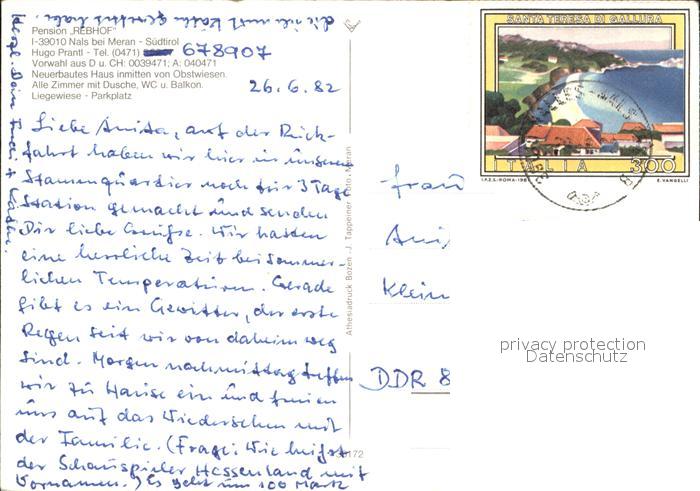 Pension „REBHOF"
I-39010 Nals bei Meran - Südtirol
Hugo Prantl - Tel. (0471) 678907
Vorwahl aus D u. CH: 0039471; A: 040471
Neuerbautes Haus inmitten von Obstwiesen.
Alle Zimmer mit Dusche, WC u. Balkon.
Liegewiese - Parkplatz
26.6.82
Liebe Anita, auf der Rück-
fahrt haben wir hier in unserem
Stammquartier noch für 3 Tage
Station gemacht und senden
Dir liebe Grüße. Wir hatten
eine herrliche Zeit bei sommer-
lichen Temperaturen. Gerade
gibt es ein Gewitter, der erste
Regen seit wir von daheim weg
sind. Morgen nachmittag treffen
wir zu Hause ein und freuen
uns auf das Wiedersehen mit
der Familie. (Frage: Wie heißt
der Schauspieler Hessenland mit
Vornamen.) Es geht um 100 Mark
die wir mit
Herzl. Dein
Athesiadruck Bozen - J. Tappeiner Foto, Meran
172
Frau
Ani
Klein
DDR 8
SANTA TERESA DI GALLURA
ITALIA 300
I.P.Z.S.-ROMA-198
E. VANGELLI
privacy protection
Datenschutz